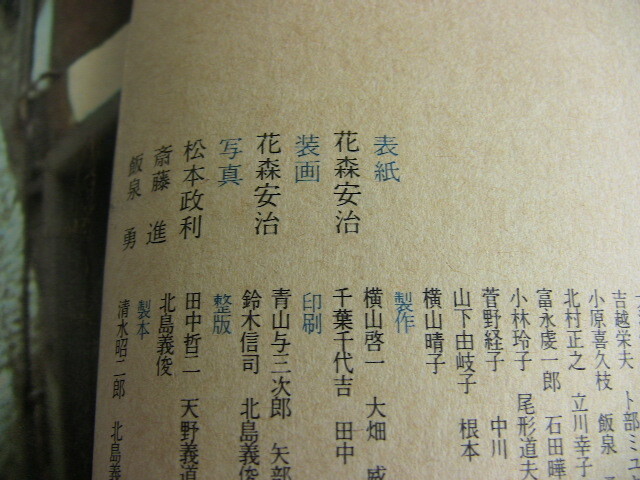 表紙
花森安治
装画
花森安治
写真
松本政利
斎藤 進
飯泉 勇
吉越栄夫 卜部ミユ
小原喜久枝 飯泉
北村正之 立川幸子
富永虔一郎 石田曄
小林玲子 尾形道夫
菅野経子 中川
山下由岐子 根本
横山晴子
製作
横山啓一 大畑 威
千葉千代吉 田中
印刷
青山与三次郎 矢部
鈴木信司 北島義俊
整版
田中哲二 天野義道
北島義俊
製本
清水昭二郎 北島義